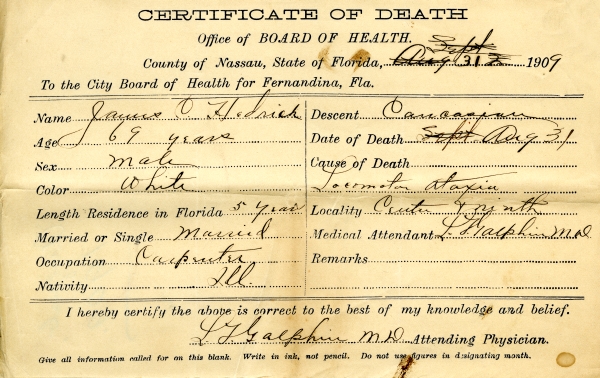 CERTIFICATE OF DEATH
Office of BOARD OF HEALTH.
Sept
County of Nassau, State of Florida, Aug 31 1909
To the City Board of Health for Fernandina, Fla.
Name James O Hedrick
Age 69 years
Sex Male
Color White
Length Residence in Florida 5 Years
Married or Single Married
Occupation Carpenter
Nativity Ill
Descent Caucasian
Date of Death Sept Aug 31
Cause of Death
Locomotor Ataxia
Locality Center
Medical Attendant L. Galphin M D
Remarks
I hereby certify the above is correct to the best of my knowledge and belief.
Galphin M D Attending Physician.
Give all information called for on this blank. Write in ink, not pencil. Do not use figures in designating month.